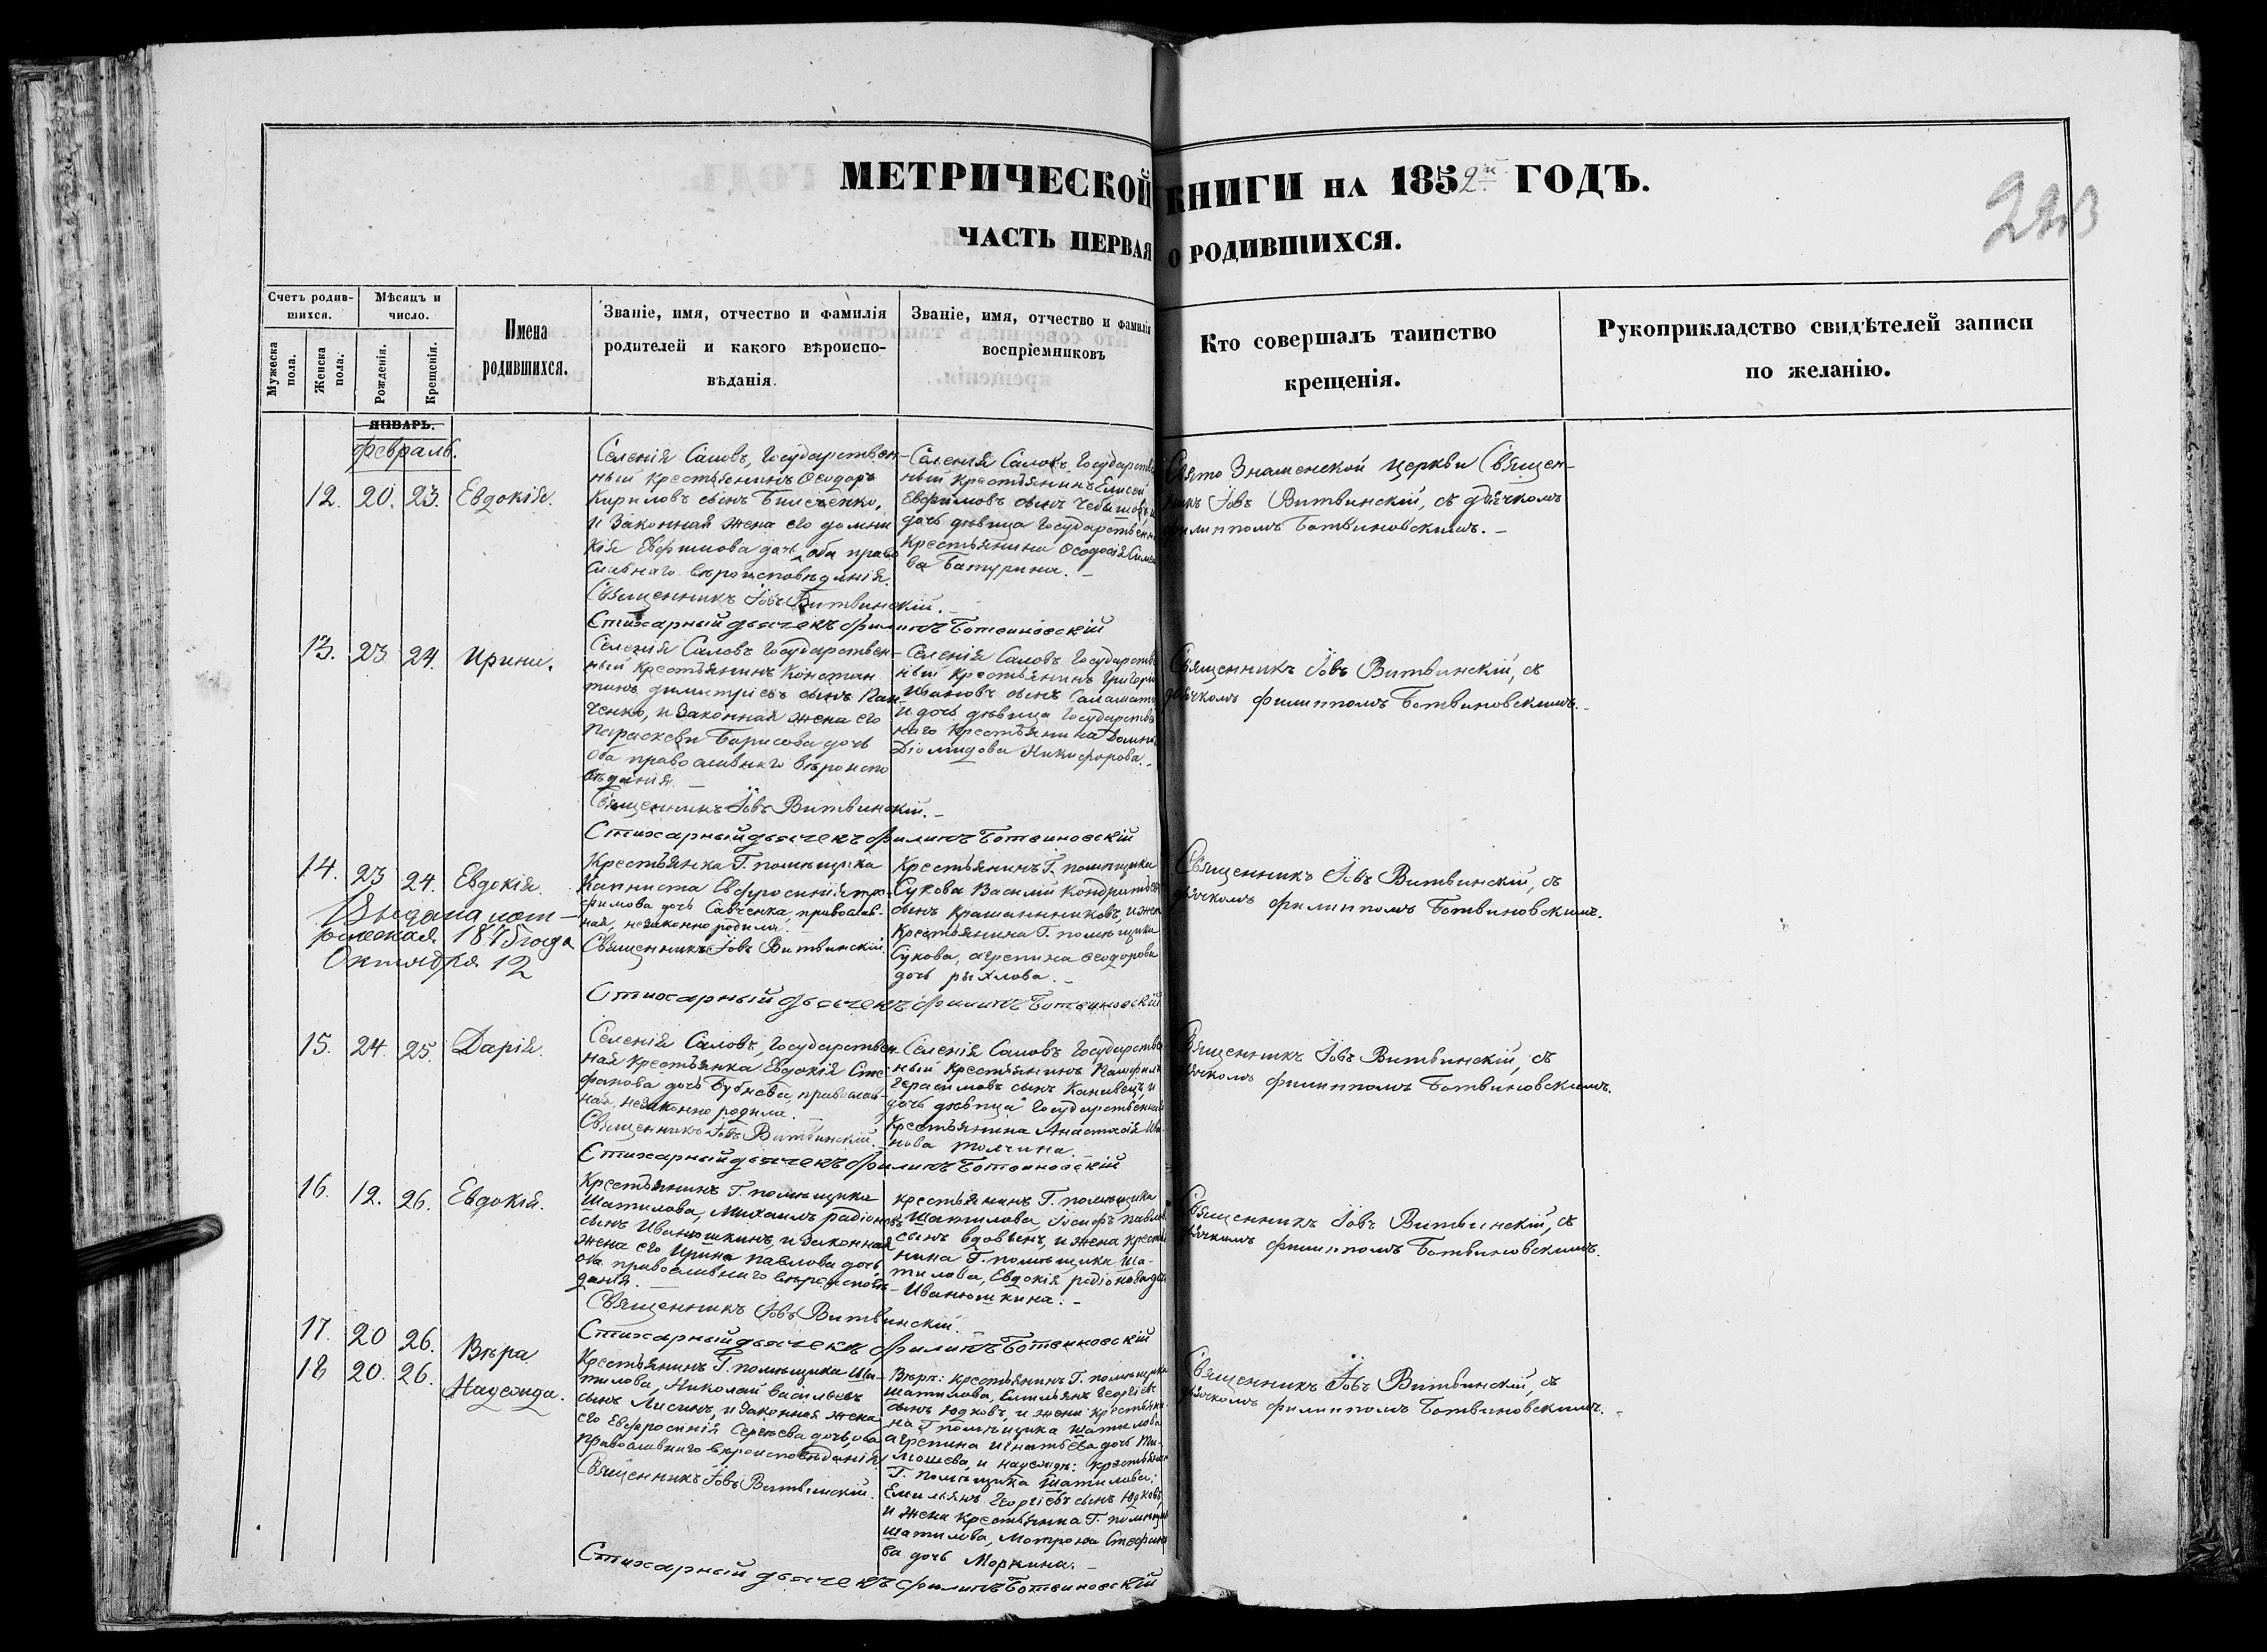 МЕТРИЧЕСКОЙ КНИГИ НА 1852й ГОДЪ.
ЧАСТЬ ПЕРВАЯ О РОДИВШИХСЯ.
223
Счетъ родив-
шихся.
Мужеска
пола.
Женска
пола.
Мѣсяцъ и
число.
Рожденія.
Крещенія.
Имена
родившихся.
Званіе, имя, отчество и фамилія
родителей и какого вѣроиспо-
вѣданія.
Званіе, имя, отчество и фамилія
воспріемниковъ
Кто совершалъ таинство
крещенія.
Рукоприкладство свидѣтелей записи
по желанію.
ЯНВАРЬ.
февраль.
12. 20. 23. Евдокія.
Селенія Саловъ, Государствен-
ный крестьянинъ Ѳеодоръ
Кириловъ сынъ
и законная жена его Домни
кія Евфимова дочь, оба право
славнаго вѣроисповѣданія.
Священникъ Іовъ Витвинскій.
Стихарный дьячекъ Филипъ Ботвиновскій
Селенія Саловъ, Государствен
ный крестьянинъ Елисей
Евфимовъ сынъ
дочь дѣвица Государственн
крестьянина Ѳеодосія
ва Батурина.
Свято Знаменской церкви Священ-
никъ Іовъ Витвинскій, съ дьячкомъ
Филиппомъ Ботвиновскимъ.
13. 23 24. Ирина.
Селенія Саловъ Государствен-
ный крестьянинъ Констан
тинъ Димитріевъ сынъ Пан-
ченко, и законная жена его
Параскева Борисова дочь
оба православнаго вѣроиспо
вѣданія.
Священникъ Іовъ Витвинскій.
Стихарный дьячекъ Филипъ Ботвиновскій
Селенія Саловъ Государств
ный крестьянинъ Григорій
Ивановъ сынъ
и дочь дѣвица Государствен
наго крестьянина
Діомидова Никифорова.
Священникъ Іовъ Витвинскій, съ
дьячкомъ Филиппомъ Ботвиновскимъ.
14. 23 24. Евдокія.
Выдана мет-
рическая 1875 года
Октября 12
Крестьянка Г. помѣщика
Капниста Евфросинія Тро-
фимова дочь Савченка, православ-
ная, незаконно родила.
Священникъ Іовъ Витвинскій.
Стихарный дьячекъ Филипъ Ботвиновскій
Крестьянинъ Г. помѣщика
Сукова Василій Кондратьевъ
сынъ Крашенинниковъ, и жен
крестьянина Г. помѣщика
Сукова, Агрепина Ѳеодорова
дочь Рыхлова.
Священникъ Іовъ Витвинскій, съ
дьячкомъ Филиппомъ Ботвиновскимъ.
15. 24. 25. Дарія.
Селенія Саловъ, Государствен
ная крестьянка Евдокія Сте-
фанова дочь Бубнева, православ-
ная, незаконно родила.
Священникъ Іовъ Витвинскій.
Стихарный дьячекъ Филипъ Ботвиновскій
Селенія Саловъ Государстве
ный крестьянинъ Памфилъ
Герасимовъ сынъ Канивецъ, и
дочь дѣвица Государственнаго
крестьянина Анастасія Ива
нова Толчина.
Священникъ Іовъ Витвинскій, съ
дьячкомъ Филиппомъ Ботвиновскимъ.
16. 12. 26. Евдокія.
Крестьянинъ Г. помѣщика
Шатилова, Михаилъ Радіоновъ
сынъ Иванюшкинъ, и законная
жена его Ирина Павлова дочь,
оба православнаго вѣроисповѣ-
данія.
Священникъ Іовъ Витвинскій.
Стихарный дьячекъ Филипъ Ботвиновскій
Крестьянинъ Г. помѣщика
Шатилова, Іосифъ Павлов
сынъ Вдовынъ, и жена кресть
нина Г. помѣщика Ша-
тилова, Евдокія Радіонова дочь
Иванюшкина.
Священникъ Іовъ Витвинскій, съ
дьячкомъ Филиппомъ Ботвиновскимъ.
17. 20 26. Вѣра
18 20. 26. Надежда.
Крестьянинъ Г. помѣщика Ша-
тилова, Николай Васильевъ
сынъ Лисинъ, и законная жена
его Евфросинія Сергѣева дочь, оба
православнаго вѣроисповѣданія.
Священникъ Іовъ Витвинскій.
Стихарный дьячекъ Филипъ Ботвиновскій
Вѣры: крестьянинъ Г. помѣщика
Шатилова, Емильянъ Георгіевъ
сынъ Юдковъ, и жена крестьяни-
на Г. помѣщика Шатилова
Агрепина Игнатьева дочь Ти-
мошева, и Надежды: крестьянин
Г. помѣщика Шатилова:
Емильянъ Георгіевъ сынъ Юдковъ,
и жена крестьянина Г. помѣщик
Шатилова, Матрона Стефано
ва дочь Моркина.
Священникъ Іовъ Витвинскій, съ
дьячкомъ Филиппомъ Ботвиновскимъ.